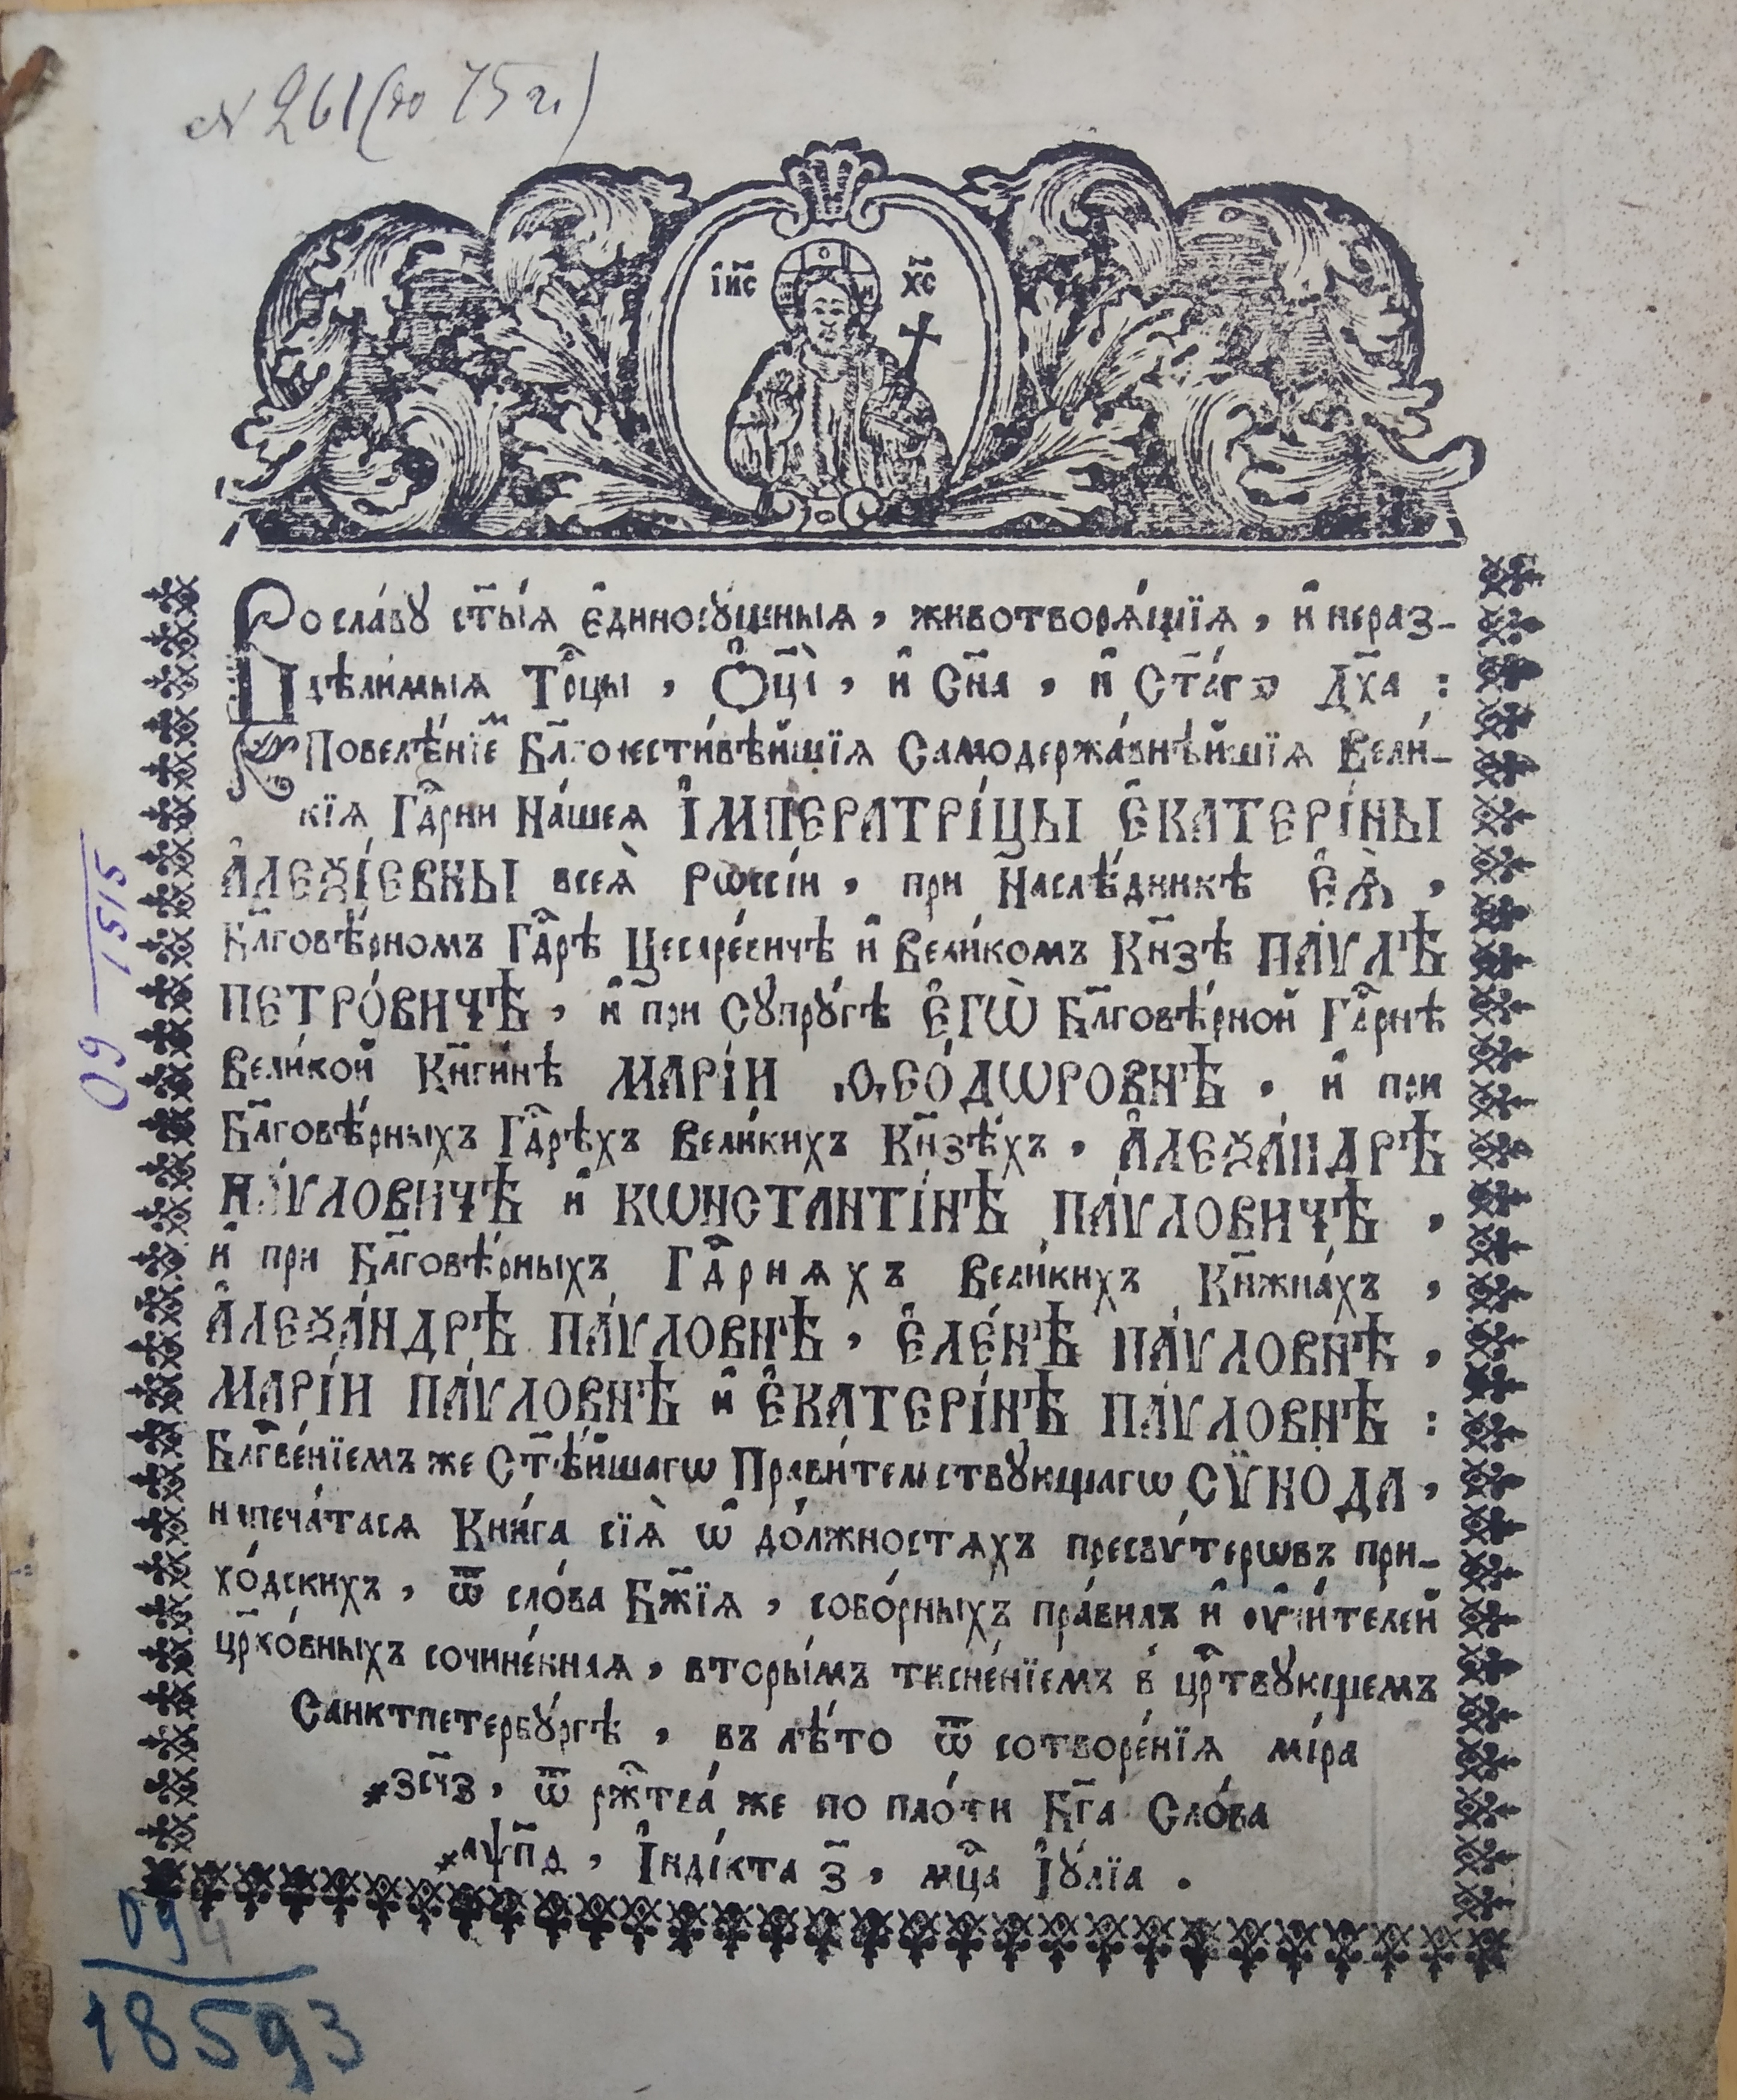 N 261 (до 75 г.)
І҆и҃с Х҃с
Во сла́вꙋ ст҃ы́ѧ є҆диносꙋ́щныѧ, животворѧ́щїѧ, и҆ нераз-
дѣли́мыѧ Трⷪ҇цы, Ѻ҆ц҃а̀, и҆ Сн҃а, и҆ Ст҃а́гѡ Дх҃а:
Повелѣ́нїемъ Бл҃гочести́вѣйшїѧ Самодержа́внѣйшїѧ Вели́-
кїѧ Гдⷭ҇рни На́шеѧ І҆МПЕРАТРІ́ЦЫ Є҆КАТЕРІ́НЫ
А҆ЛЕѮІ́ЕВНЫ всеѧ̀ Рѡссі́и, при Наслѣ́дникѣ Є҆Ѧ̀,
Бл҃говѣ́рномъ Гдⷭ҇рѣ Цесаре́вичѣ и҆ Вели́комъ Кн҃зѣ ПА́ѴЛѢ
ПЕТРО́ВИЧѢ, и҆ при Сꙋпрꙋ́гѣ Є҆ГѠ̀ Бл҃говѣ́рной Гдⷭ҇рнѣ
Вели́кой Кн҃ги́нѣ МАРІ́И Ѳ̑ЕО́ДѠРОВНѢ, и҆ при
Бл҃говѣ́рныхъ Гдⷭ҇рѣхъ Вели́кихъ Кн҃зѣ́хъ, А҆ЛЕѮА́НДРѢ
ПА́ѴЛОВИЧѢ и҆ КѠНСТАНТІ́НѢ ПА́ѴЛОВИЧѢ,
и҆ при Бл҃говѣ́рныхъ Гдⷭ҇рнѧхъ Вели́кихъ Кн҃жна́хъ,
А҆ЛЕѮА́НДРѢ ПА́ѴЛОВНѢ, Є҆ЛЕ́НѢ ПА́ѴЛОВНѢ,
МАРІ́И ПА́ѴЛОВНѢ и҆ Є҆КАТЕРІ́НѢ ПА́ѴЛОВНѢ:
Блгⷭ҇ве́нїемъ же Ст҃ѣ́йшагѡ Прави́тельствꙋющагѡ СѴ̈НО́ДА,
напеча́тасѧ Кни́га сїѧ̀ ѡ҆ до́лжностѧхъ пресвѵ́терѡвъ при-
хо́дскихъ, ѿ сло́ва Бж҃їѧ, собо́рныхъ пра́вилъ и҆ ᲂу҆чи́телей
цр҃ко́вныхъ сочине́ннаѧ, вторы́мъ тисне́нїемъ в̾ црⷭ҇твꙋющемъ
Санктпетербꙋ́ргѣ, въ лѣ́то ѿ сотворе́нїѧ мі́ра
҂зс҃чв, ѿ ржⷭ҇тва́ же по пло́ти Бг҃а Сло́ва
҂аѱ҃пд, І҆нді́кта з҃, мцⷭ҇а І҆ꙋ́лїа.
09 1515
094
18593